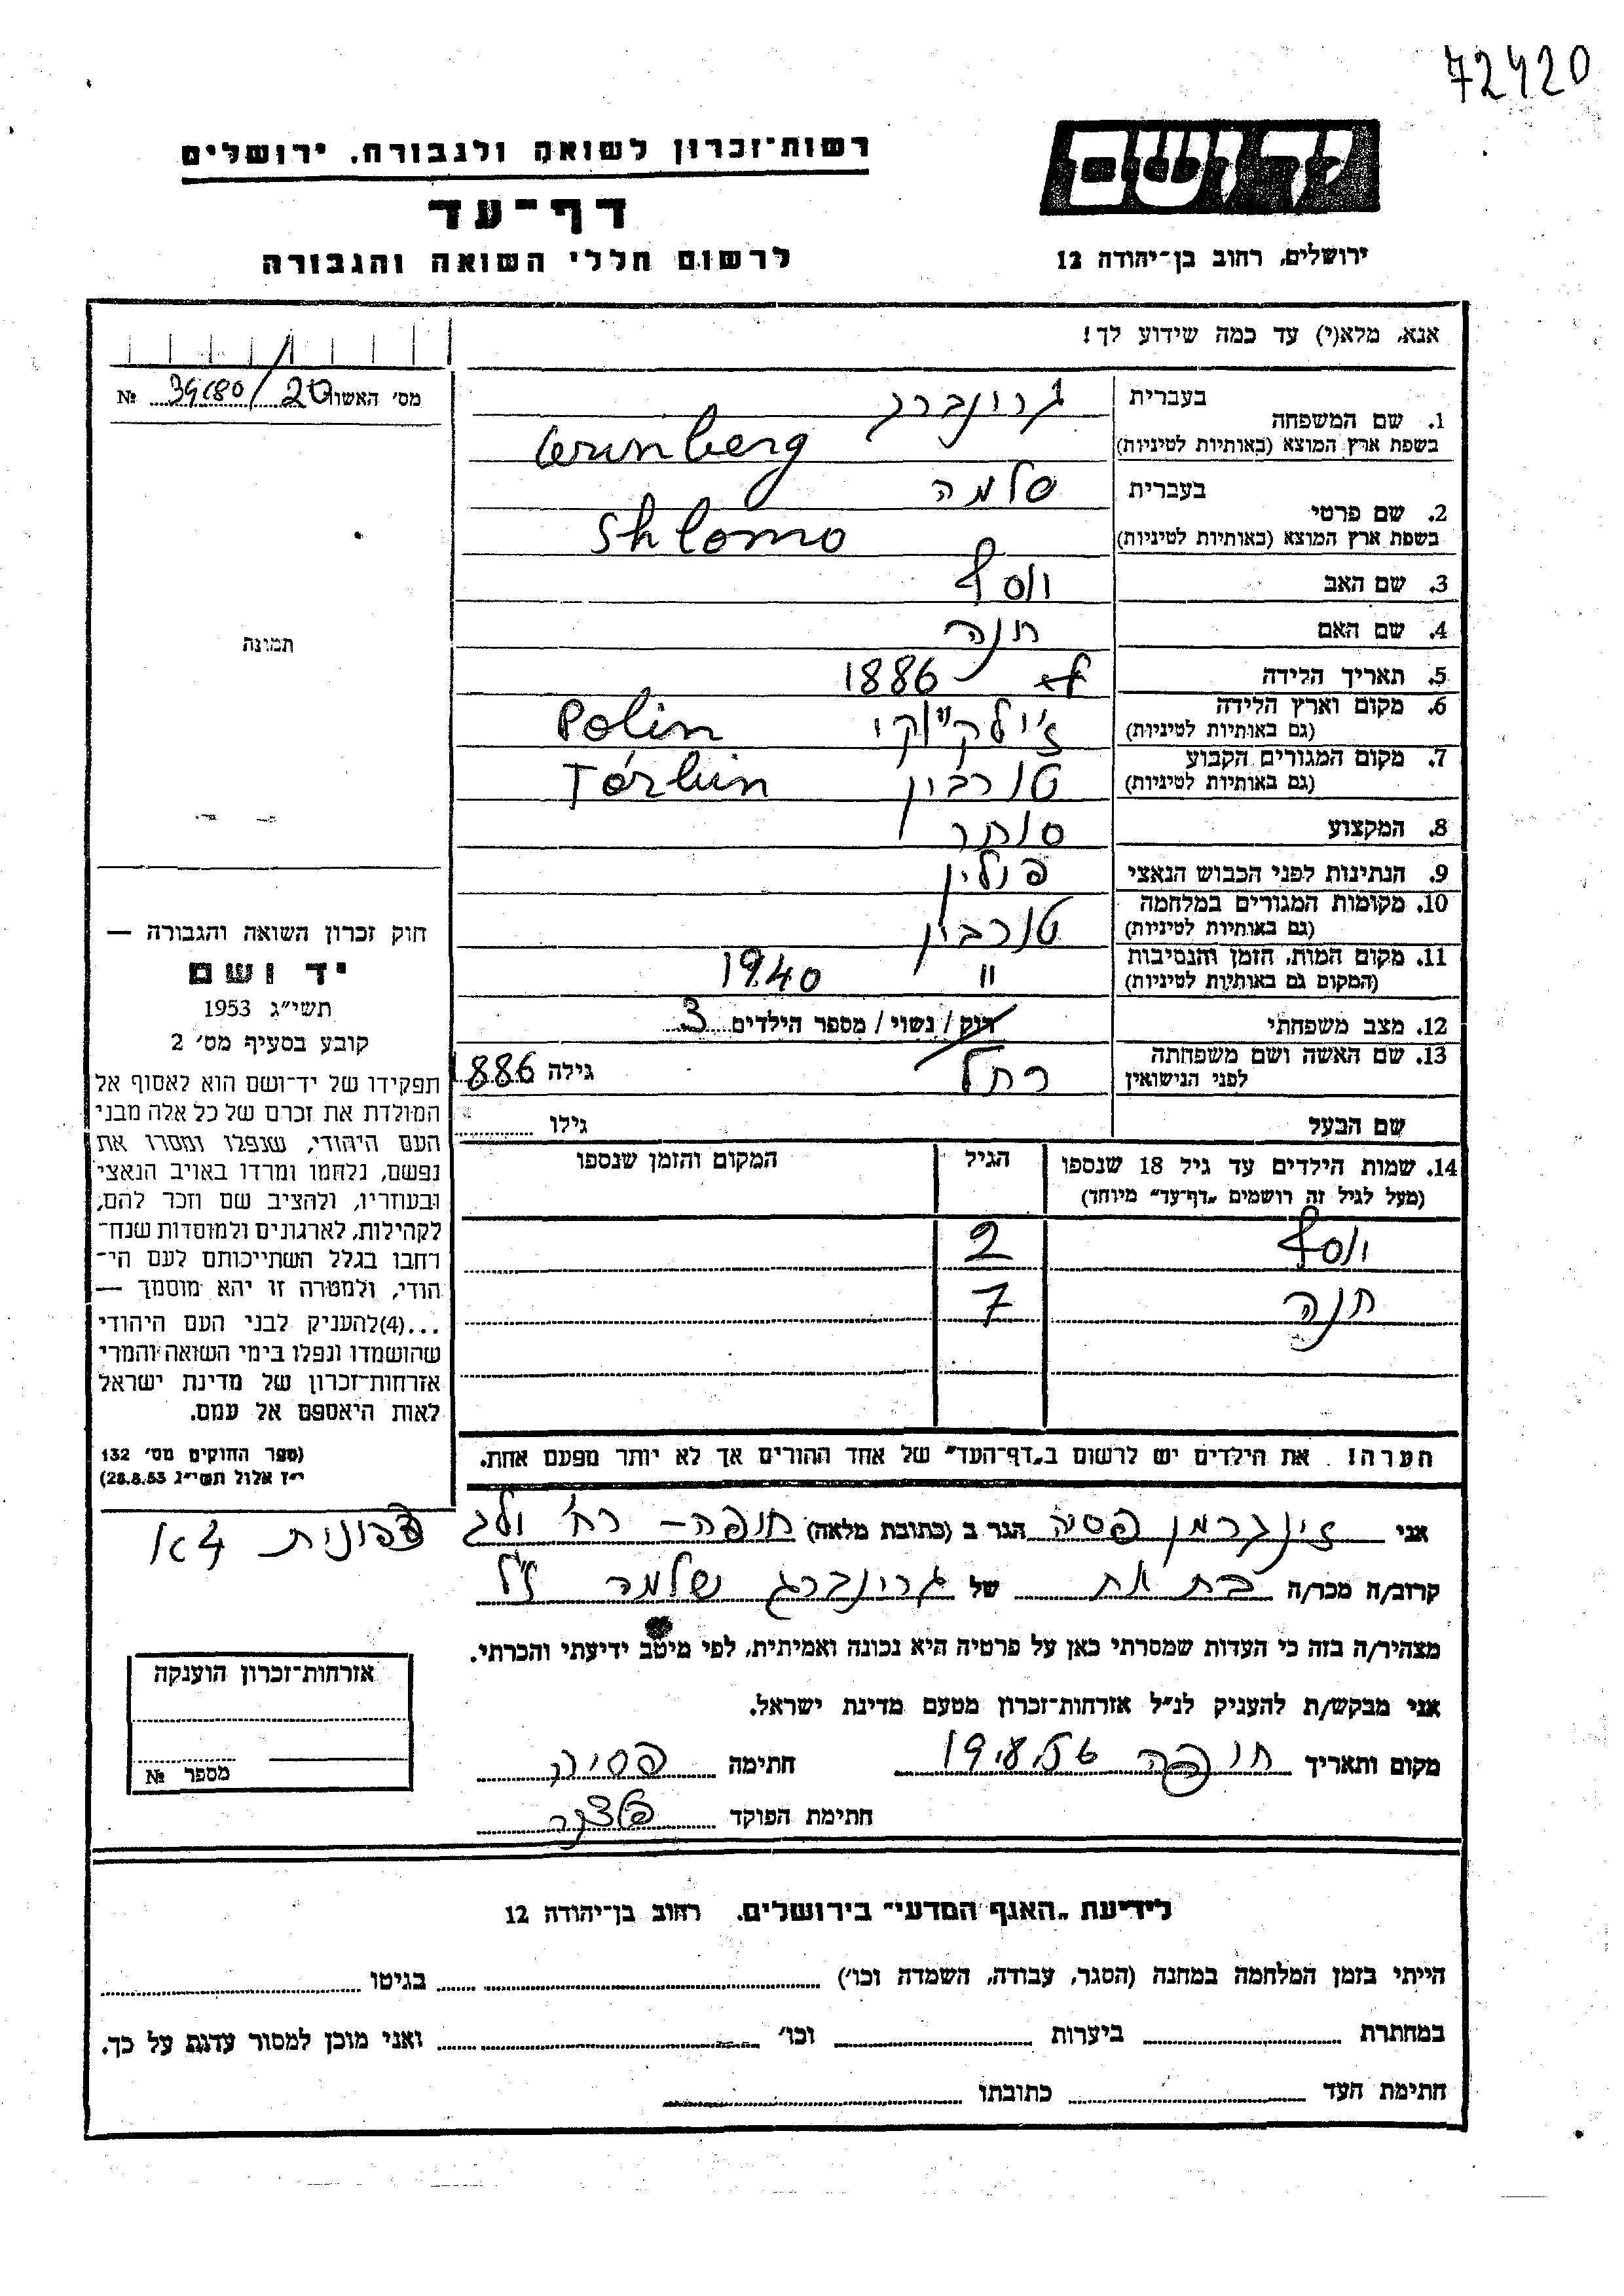 72420
רשות־זכרון לשואה ולגבורה. ירושלים
דף־עד
לרשום חללי השואה והגבורה
יד ושם
ירושלים, רחוב בן־יהודה 12
אנא, מלא(י) עד כמה שידוע לך!
מס׳ האשור 39180/20 №
תמונה
חוק זכרון השואה והגבורה —
יד ושם
תשי״ג 1953
קובע בסעיף מס׳ 2
תפקידו של יד־ושם הוא לאסוף אל
המולדת את זכרם של כל אלה מבני
העם היהודי, שנפלו ומסרו את
נפשם, נלחמו ומרדו באויב הנאצי
ובעוזריו, ולהציב שם וזכר להם,
לקהילות, לארגונים ולמוסדות שנח־
רחבו בגלל השתייכותם לעם הי־
הודי, ולמטרה זו יהא מוסמך —
...(4)להעניק לבני העם היהודי
שהושמדו ונפלו בימי השואה והמרי
אזרחות־זכרון של מדינת ישראל
לאות היאספם אל עמם.
(ספר החוקים מס׳ 132
י״ז אלול תשי״ג 28.8.53)
בעברית גרונברג
1. שם המשפחה
בשפת ארץ המוצא (באותיות לטיניות) Grunberg
בעברית סלמה
2. שם פרטי
בשפת ארץ המוצא (באותיות לטיניות) Shlomo
3. שם האב יוסף
4. שם האם חנה
5. תאריך הלידה 1886
6. מקום וארץ הלידה
(גם באותיות לטיניות) Polin
7. מקום המגורים הקבוע
(גם באותיות לטיניות) טורבין Tórbin
8. המקצוע סוחר
9. הנתינות לפני הכבוש הנאצי פולין
10. מקומות המגורים במלחמה
(גם באותיות לטיניות) טורבין
11. מקום המות, הזמן והנסיבות
(המקום גם באותיות לטיניות) " 1940
12. מצב משפחתי רוק / נשוי / מספר הילדים 3
13. שם האשה ושם משפחתה
לפני הנישואין רחל גילה 1886
שם הבעל גילו
14. שמות הילדים עד גיל 18 שנספו הגיל המקום והזמן שנספו
(מעל לגיל זה רושמים „דף־עד״ מיוחד)
יוסף 2
חנה 7
הערה! את הילדים יש לרשום ב„דף־העד״ של אחד ההורים אך לא יותר מפעם אחת.
אני זינגרמן פסיה הגר ב (כתובת מלאה) חיפה – רח׳
צפונית 4א
קרוב/ה מכר/ה בת אח של גרינברג שלמה ז״ל
מצהיר/ה בזה כי העדות שמסרתי כאן על פרטיה היא נכונה ואמיתית, לפי מיטב ידיעתי והכרתי.
אני מבקש/ת להעניק לנ״ל אזרחות־זכרון מטעם מדינת ישראל.
מקום ותאריך חיפה 19.8.56 חתימה פסיה
חתימת הפוקד
אזרחות־זכרון הוענקה
מספר №
לידיעת „האגף המדעי״ בירושלים. רחוב בן־יהודה 12
הייתי בזמן המלחמה במחנה (הסגר, עבודה, השמדה וכו׳) בגיטו
במחתרת ביערות וכו׳ ואני מוכן למסור עדות על כך.
חתימת העד כתובתו